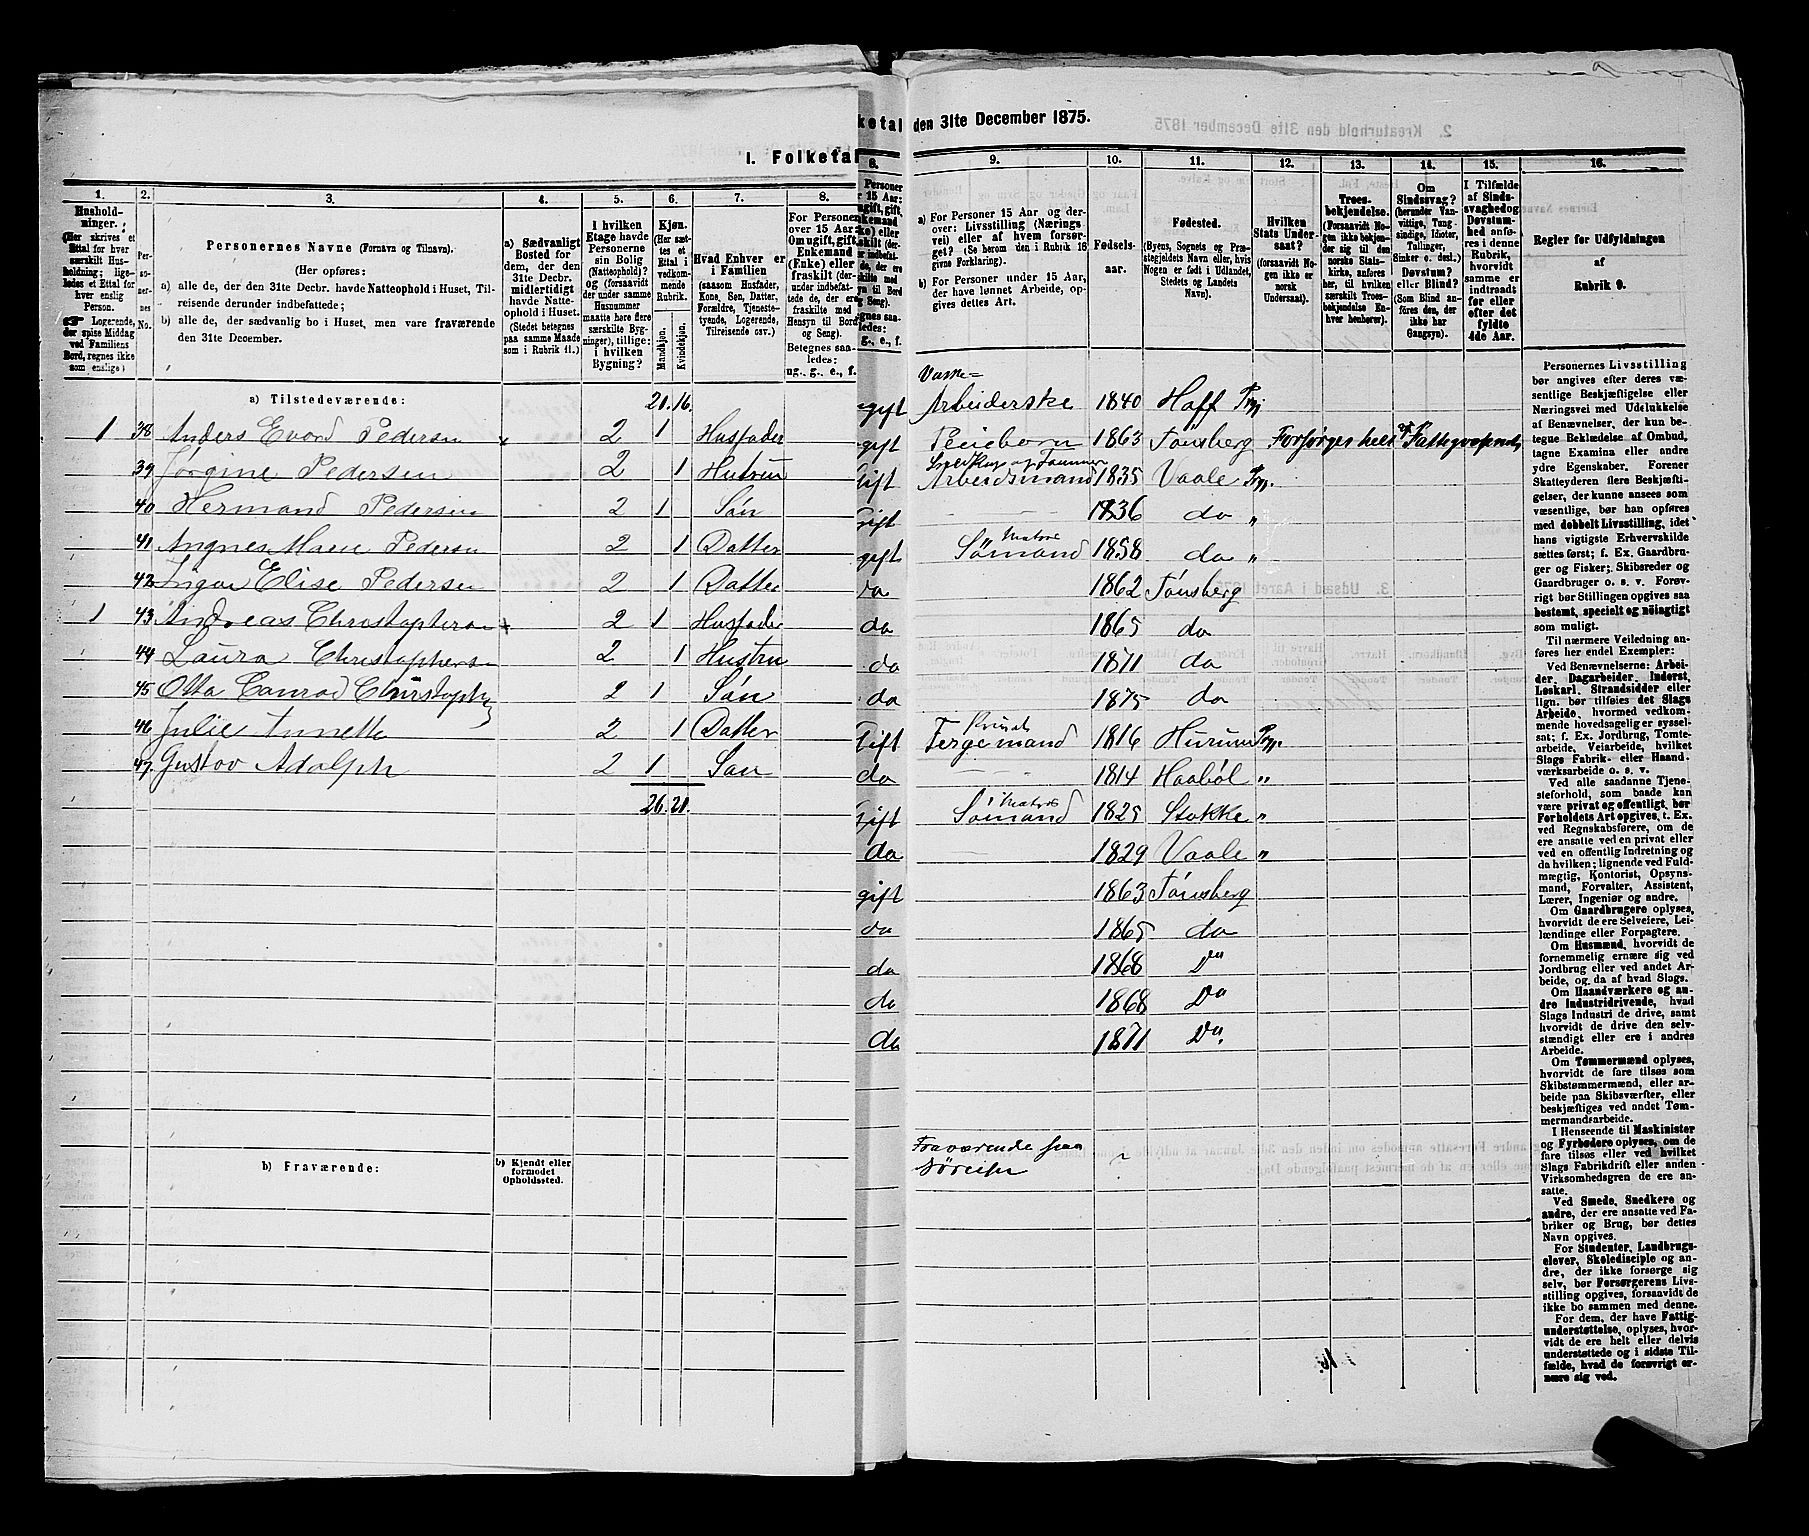 I. Folketal
1.
2.
3.
4.
5.
6.
7.
8.
Hushold-
ninger.
(Her skrives et
Ettal for hver
særskilt Hus-
holdning; lige-
ledes et Ettal for
hver enslig
Person.
☞ Logerende,
der spise Middag
ved Familiens
Bord, regnes ikke
som enslige)
Per-
so-
ner-
nes
No.
Personernes Navne (Fornavn og Tilnavn).
(Her opføres:
a) alle de, der den 31te Decbr. havde Natteophold i Huset, Til-
reisende derunder indbefattede;
b) alle de, der sædvanlig bo i Huset, men vare fraværende
den 31te December.
a) Sædvanligt
Bosted for
dem, der den
31te Decbr.
midlertidigt
havde Natte-
ophold i Huset.
(Stedet betegnes
paa samme Maade
som i Rubrik 11.)
I hvilken
Etage havde
Personerne
sin Bolig
(Natteophold)?
og (forsaavidt
der under samme
Husnummer
maatte høre flere
særskilte Byg-
ninger), tillige:
i hvilken
Bygning?
Kjøn.
(Her sæt-
tes et
Ettal i
vedkom-
mende
Rubrik.
Mandkjøn.
Kvindekjøn.
Hvad Enhver er
i Familien
(saasom Husfader,
Kone, Søn, Datter,
Forældre, Tjeneste-
tyende, Logerende,
Tilreisende osv.)
For Personer
over 15 Aar:
Om ugift, gift,
Enkemand
(Enke) eller
fraskilt (der-
under indbefat-
tede de, der ere
fraskilte med
Hensyn til Bord
og Seng).
Betegnes saa-
ledes:
ug., g., e., f.
a) Tilstedeværende:
21. 16.
1 38 Anders Evord Pedersen 2 1 Husfader
39 Jørgine Pedersen 2 1 Hutrun
40 Hermand Pedersen 2 1 Søn
41 Angnes Marie Pedersn 2 1 Datter
42 Ingar Elise Pedersen 2 1 Datter
1 43 Andreas Christophersn + 2 1 Husfader
44 Laura Christophersn 2 1 Hustru
45 Otto Conrad Christoph 2 1 Søn
46 Julie Annette 2 1 Datter
47. Gustov Adolph 2 1 Søn
26. 21.
b) Fraværende:
b) Kjendt eller
formodet
Opholdssted.
den 31te December 1875.
9.
10.
11.
12.
13.
14.
15.
16.
a) For Personer 15 Aar og der-
over: Livsstilling (Nærings-
vei) eller af hvem forsør-
get? (Se herom den i Rubrik 16
givne Forklaring).
b) For Personer under 15 Aar,
der have lønnet Arbeide, op-
gives dettes Art.
Fødsels-
aar.
Fødested.
(Byens, Sognets og Præ-
stegjeldets Navn eller, hvis
Nogen er født i Udlandet,
Stedets og Landets
Navn).
Hvilken
Stats Under-
saat?
(forsaavidt No-
gen ikke er
norsk
Undersaat).
Troes-
bekjendelse.
(Forsaavidt No-
gen ikke bekjen-
der sig til den
norske Stats-
kirke, anføres
her, til hvilken
særskilt Troes-
bekjendelse En-
hver henhører).
Om
Sindssvag?
(herunder Van-
vittige, Tung-
sindige, Idioter,
Tullinger,
Sinker o. desl.)
Døvstum?
eller Blind?
(Som Blind an-
føres den, der
ikke har
Gangsyn).
I Tilfælde
af Sinds-
svaghed og
Døvstum-
hed anfø-
res i denne
Rubrik,
hvorvidt
samme er
indtraadt
før eller
efter det
fyldte
4de Aar.
Regler for Udfyldningen
af
Rubrik 9.
Vaske=
gift Arbeiderske 1840 Hoff Prgj
gift Pleiebørn 1863 Tønsberg Forsørges helt af Fattigvæsenet
Gift Arbeidsmand 1835 Vaale Prgj.
Gift 1836 do "
gift Sømand 1858 do "
do 1862 Tønsberg
do 1865 do
do 1871 do
do 1875 do
Gift Fergemand 1816 Hurum Prgj.
do 1814 Haabøl "
Gift Sømand 1825 Stokke "
do 1829 Vaale "
gift 1863 Tønsberg
do 1865 do
do 1868 Do
do 1868 Do
do 1871 Do.
Fraværende paa
Søreise
Personernes Livsstilling
bør angives efter deres væ-
sentlige Beskjæftigelse eller
Næringsvei med Udelukkelse
af Benævnelser, der kun be-
tegne Beklædelse af Ombud,
tagne Examina eller andre
ydre Egenskaber. Forener
Skatteyderen flere Beskjæfti-
gelser, der kunne ansees som
væsentlige, bør han opføres
med dobbelt Livsstilling, idet
hans vigtigste Erhvervskilde
sættes først; f. Ex. Gaardbru-
ger og Fisker; Skibsreder og
Gaardbruger o. s. v. Forøv-
rigt bør Stillingen opgives saa
bestemt, specielt og nøiagtigt
som muligt.
Til nærmere Veiledning an-
føres her endel Exempler:
Ved Benævnelserne: Arbei-
der, Dagarbeider, Inderst,
Løskarl, Strandsidder eller
lign. bør tilføies det Slags
Arbeide, hvormed vedkom-
mende hovedsagelig er syssel-
sat; f. Ex. Jordbrug, Tomte-
arbeide, Veiarbeide, hvilket
Slags Fabrik- eller Haand-
værksarbeide o. s. v.
Ved alle saadanne Tjene-
steforhold, som baade kan
være privat og offentligt, bør
Forholdets Art opgives, t. Ex.
ved Regnskabsførere, om de
ere ansatte ved en privat eller
ved en offentlig Indretning og
da hvilken; lignende ved Fuld-
mægtig, Kontorist, Opsyns-
mand, Forvalter, Assistent,
Lærer, Ingeniør og andre.
Om Gaardbrugere oplyses,
hvorvidt de ere Selveiere, Lei-
lændinge eller Forpagtere.
Om Husmænd, hvorvidt de
fornemmelig ernære sig ved
Jordbrug eller ved andet Ar-
beide, og da af hvad Slags.
Om Haandværkere og an-
dre Industridrivende, hvad
Slags Industri de drive, samt
hvorvidt de drive den selv-
stændigt eller ere i andres
Arbeide.
Om Tømmermænd oplyses,
hvorvidt de fare tilsøs som
Skibstømmermænd, eller ar-
beide paa Skibsværfter, eller
beskjæftiges ved andet Tøm-
mermandsarbeide.
I Henseende til Maskinister
og Fyrbødere oplyses, om de
fare tilsøs eller ved hvilket
Slags Fabrikdrift eller anden
Virksomhedsgren de ere an-
satte.
Ved Smede, Snedkere og
andre, der ere ansatte ved Fa-
briker og Brug, bør dettes
Navn opgives.
For Studenter, Landbrugs-
elever, Skoledisciple og an-
dre, der ikke forsørge sig
selv, bør Forsørgerens Livs-
stilling opgives, forsaavidt de
ikke bo sammen med denne.
For dem, der have Fattig-
understøttelse, oplyses, hvor-
vidt de ere helt eller delvis
understøttede og i sidste Til-
fælde, hvad de forøvrigt er-
nære sig ved.